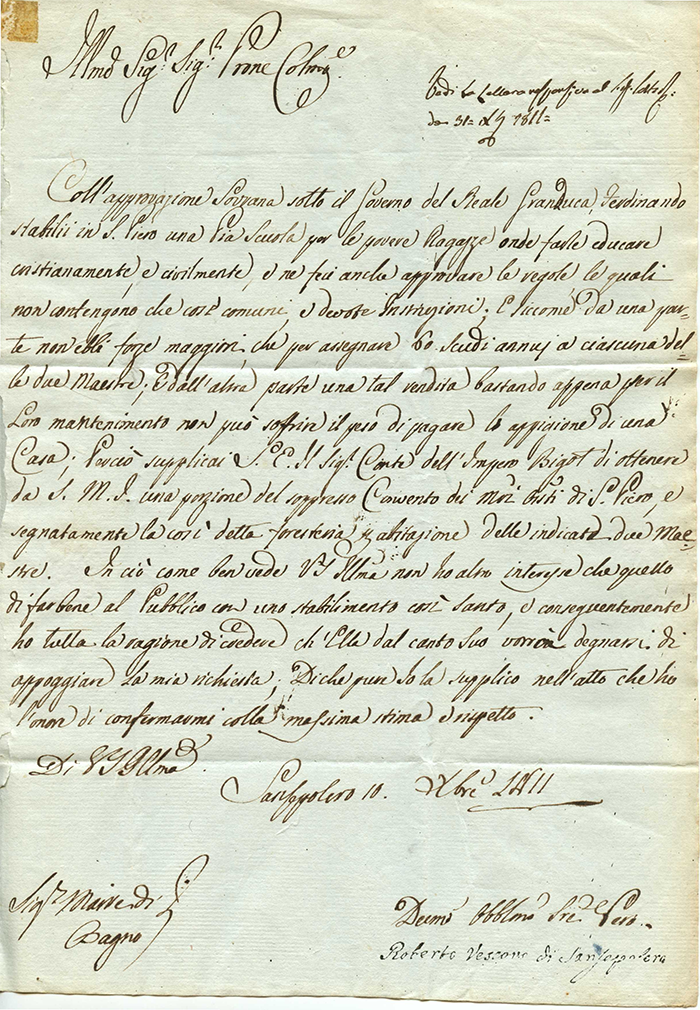 Illmo Sigr. Sigr. Prone Colmo
Vedi la Lettera responsiva al
da 31= Xbre 1811=
Coll'approvazione Sovrana sotto il Governo del Reale Granduca Ferdinando
stabilii in S. Piero una Pia Scuola per le povere Ragazze onde farle educare
cristianamente, e civilmente, e ne feci anche approvare le regole le quali
non contengono che cose comuni, e devote Instruzioni; E siccome da una par=
te non ebbi forze maggiori, che per assegnare 60. Scudi annuj a ciascuna del=
le due Maestre; E dall'altra parte una tal rendita bastando appena per il
Loro mantenimento non può soffrire il peso di pagare la appigione di una
Casa; Perciò supplicai S. E. Il Sigr. Conte dell'Impero Bigot di ottenere
da S. M. I. una porzione del soppresso Convento dei di S. Piero, e
segnatamente la così detta foresteria p abitazione delle indicate due Mae=
stre. In ciò come ben vede VS Illma non ho altro interesse che quello
di far bene al Pubblico con uno stabilimento così Santo, e conseguentemente
ho tutta la ragione di credere ch'Ella dal canto Suo vorrà degnarsi di
appoggiare la mia richiesta; Di che pure Io la supplico nell'atto che ho
l'onor di confermarmi colla massima stima e rispetto.
Di VS Illma
Sansepolcro 10. Xbre 1811
Sigr Maire di
Bagno
Devmo Obblmo Sre Vero
Roberto Vescovo di Sansepolcro